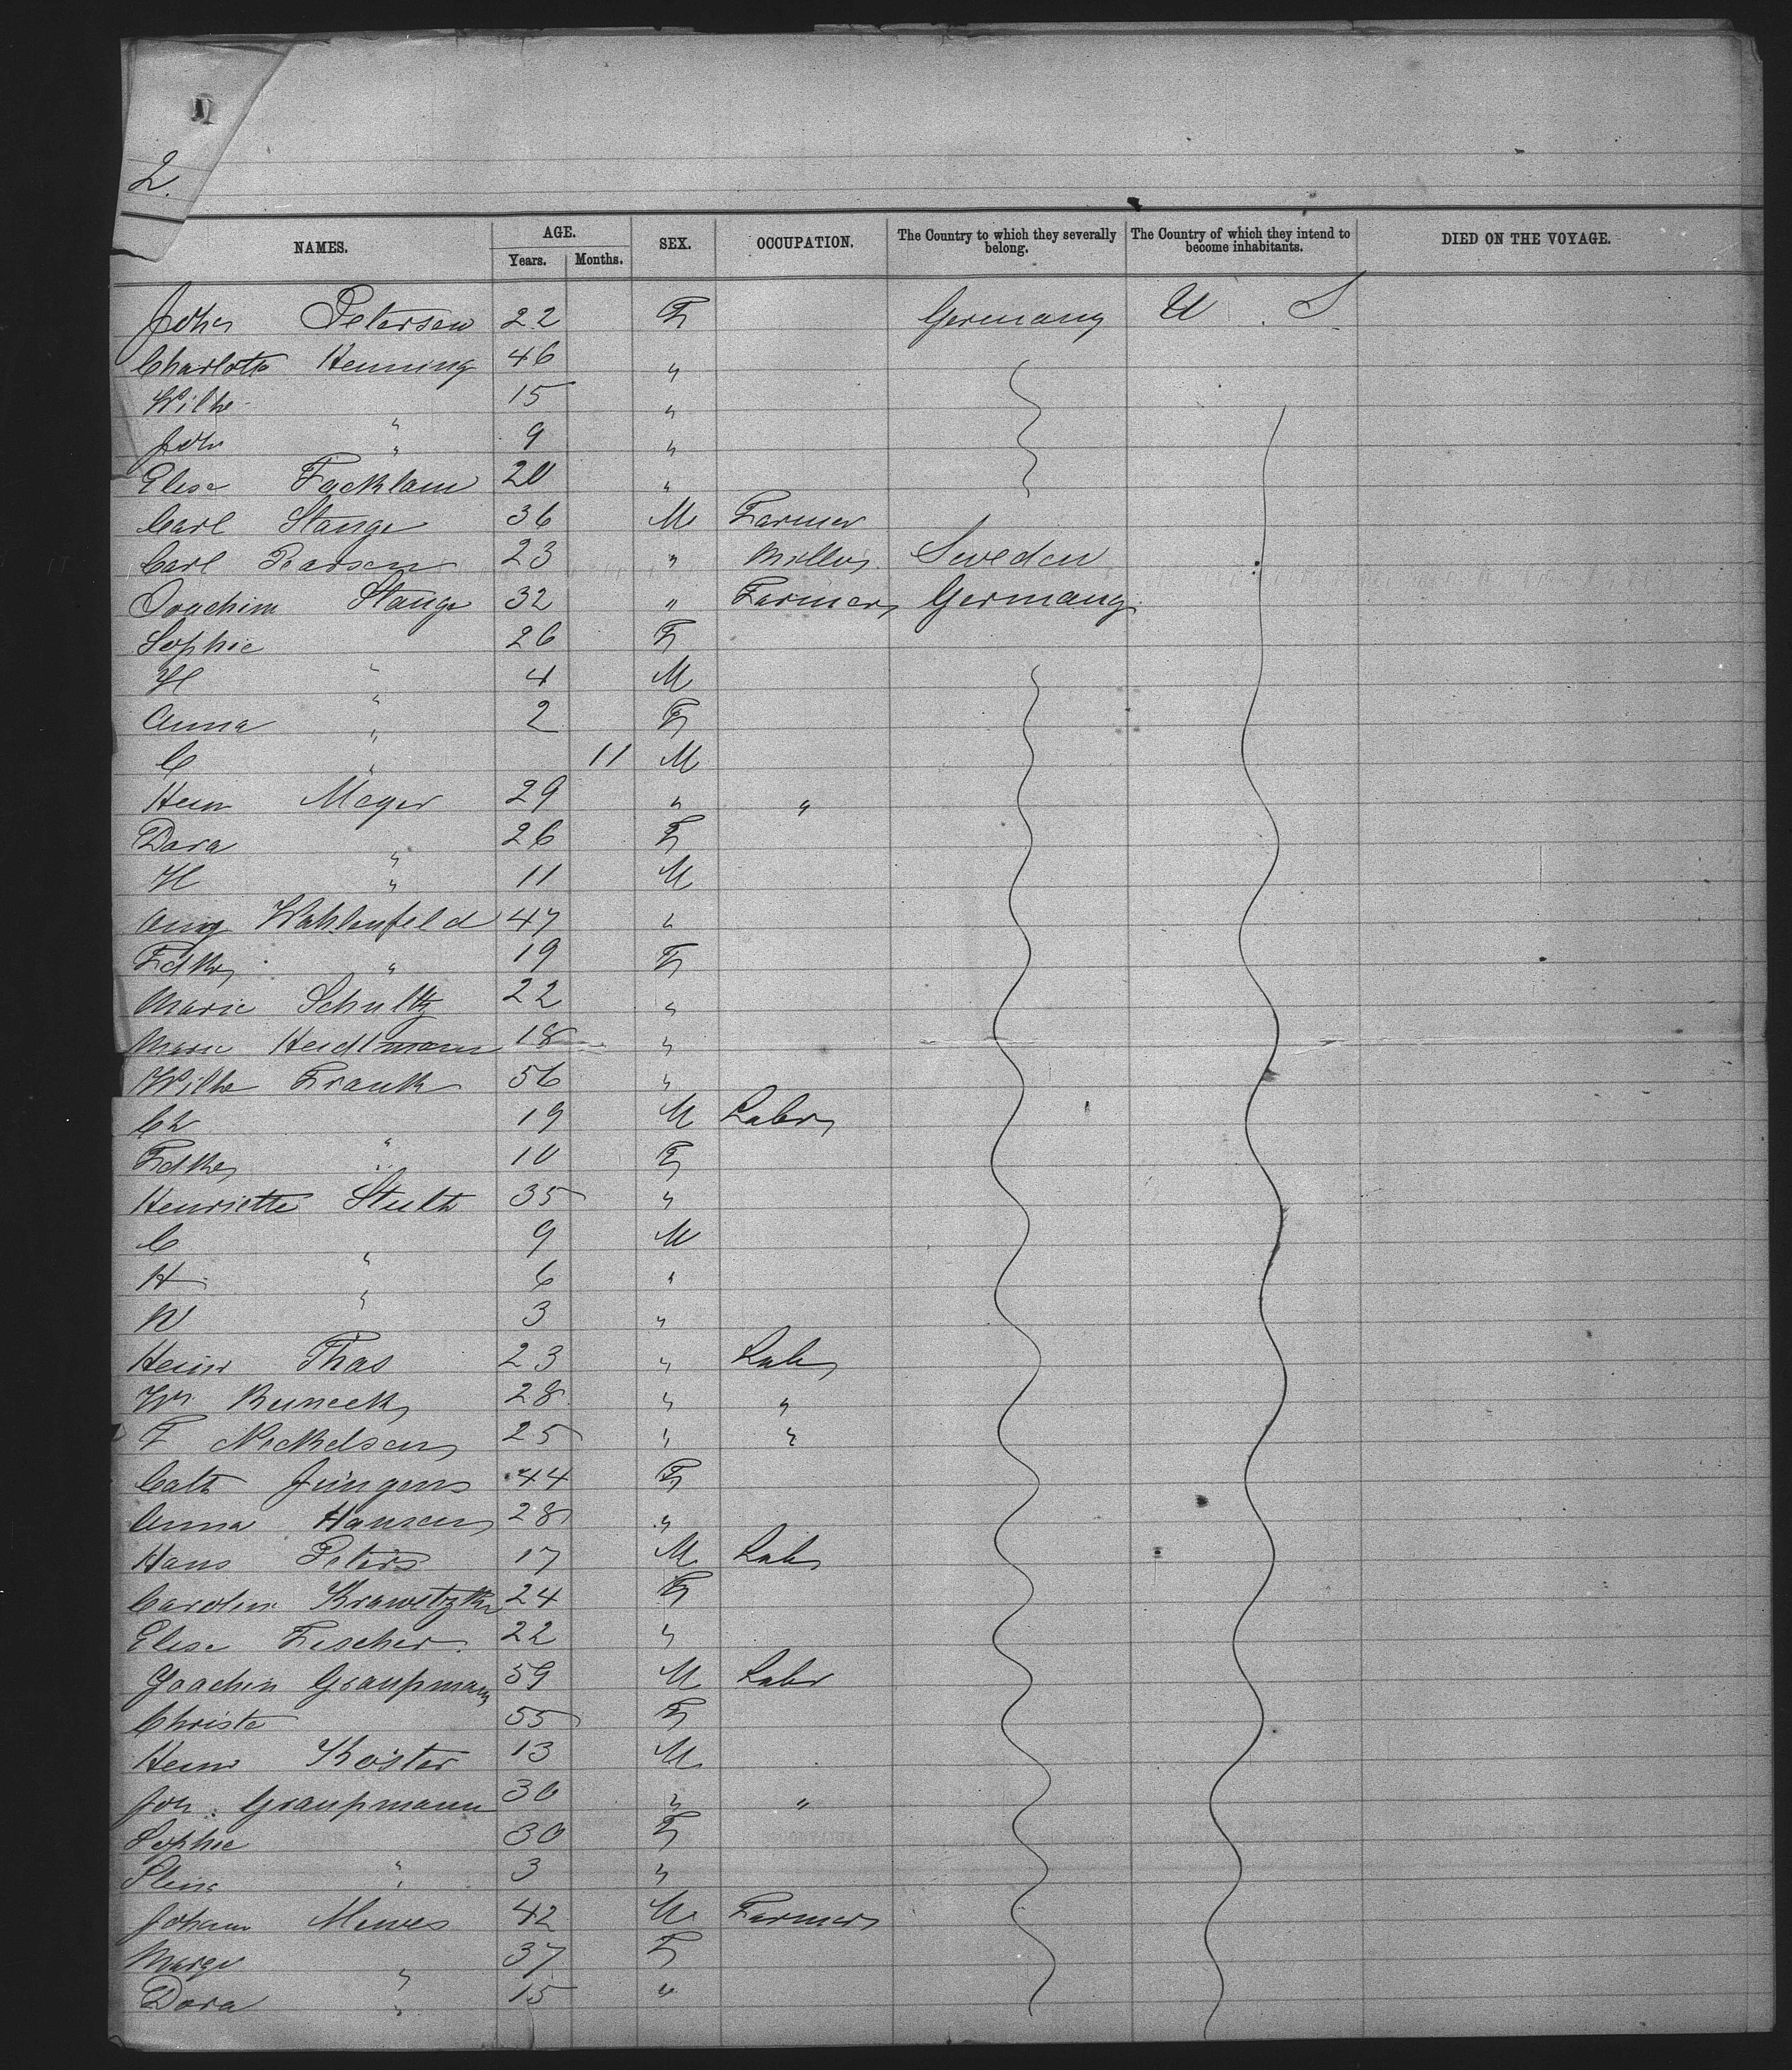 2.
NAMES. AGE. SEX. OCCUPATION. The Country to which they severally belong. The Country of which they intend to become inhabitants. DIED ON THE VOYAGE.
Years. Months.
Joh Petersen 22 F Germany U. S
Charlotte Henning 46 "
Wilhe " 15 "
Joh " 9 "
Elise Facklam 20 "
Carl Stange 36 M Farmer
Carl Pearson 23 " Miller Sweden
Joachim Stange 32 " Farmer Germany
Sophie " 26 F
H " 4 M
Anna " 2 F
C " 11 M
Heinr Meyer 29 " "
Dora " 26 F
H " 11 M
Aug Wahlenfeld 47 "
Fdke " 19 F
Marie Schultz 22 "
Marie Heidtmann 18 "
Wilhe Frank 56 "
Ch " 19 M Labr
Fdke " 10 F
Henriette Stuth 35 "
C " 9 M
H " 6 "
W 3 "
Heinr Thas 23 " Labr
Wm 28 " "
F Nickelsen 25 " "
Cath Jürgens 44 F
Anna Hansen 28 "
Hans Peters 17 M Labr
Carolin Krawitzke 24 F
Elise Fischer 22 "
Joachim Graupmann 59 M Labr
Christe 55 F
Heinr Köster 13 M
Joh. Graupmann 30 " "
Sophie " 30 F
Stina " 3 "
Johann Mewes 42 M Farmer
Marge " 37 F
Dora " 15 "